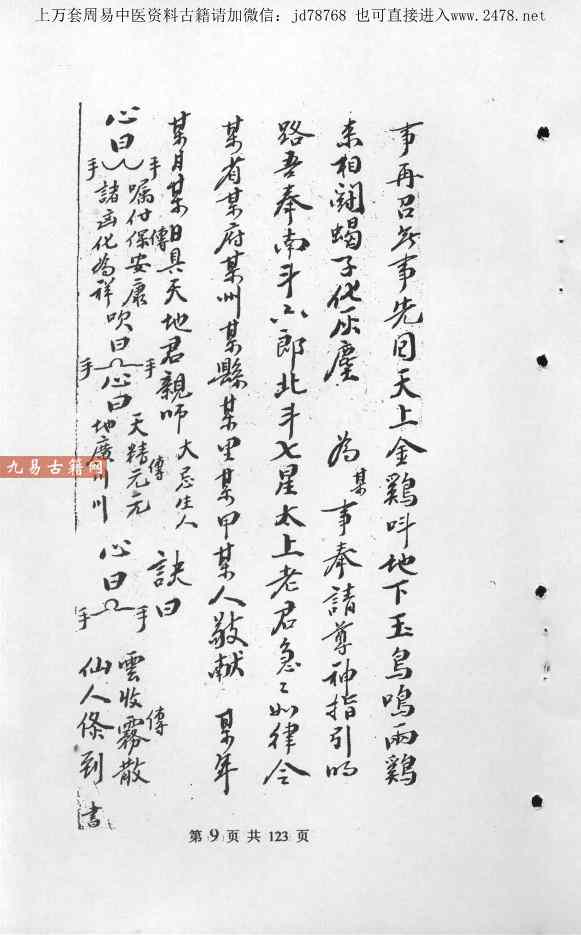 上万套周易中医资料古籍请加微信：jd78768 也可直接进入www.2478.net
事再召岁事先因天上金鷄呌地下玉鳥鳴兩鷄
来相鬪蝎子化灰塵 為某事奉請尊神指引明
路吾奉南斗六郎北斗七星太上老君急〻如律令
某省某府某州某縣某里某甲某人敬献 某年
某月某日具天地君親師大忌生人 訣曰
心曰 手 手 傳 囑付保安康 諸凶化為祥 吹曰
心曰 手 手 傳 天精元元 地廣川川
心曰 手 手 傳 雲收霧散 仙人條到 書
九易古籍网
第9页共123页